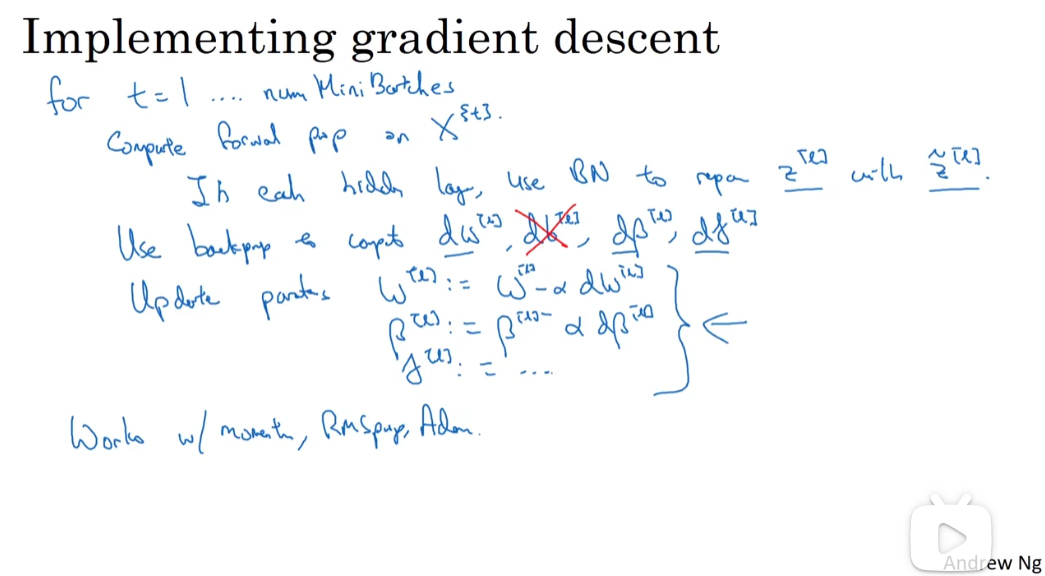 Implementing gradient descent
for t = 1 .... num Mini Batches
Compute forwal pop on X^{t}.
In eah hidde lay, use BN to repae z^[l] with z̃^[l].
Use backprop to compt dw^[l], db^[l], dβ^[l], dγ^[l]
Update partes w^[l] := w^[l] - α dw^[l]
β^[l] := β^[l] - α dβ^[l]
γ^[l] := ....
Works w/ momentu, RMSprop, Adam.
Andrew Ng